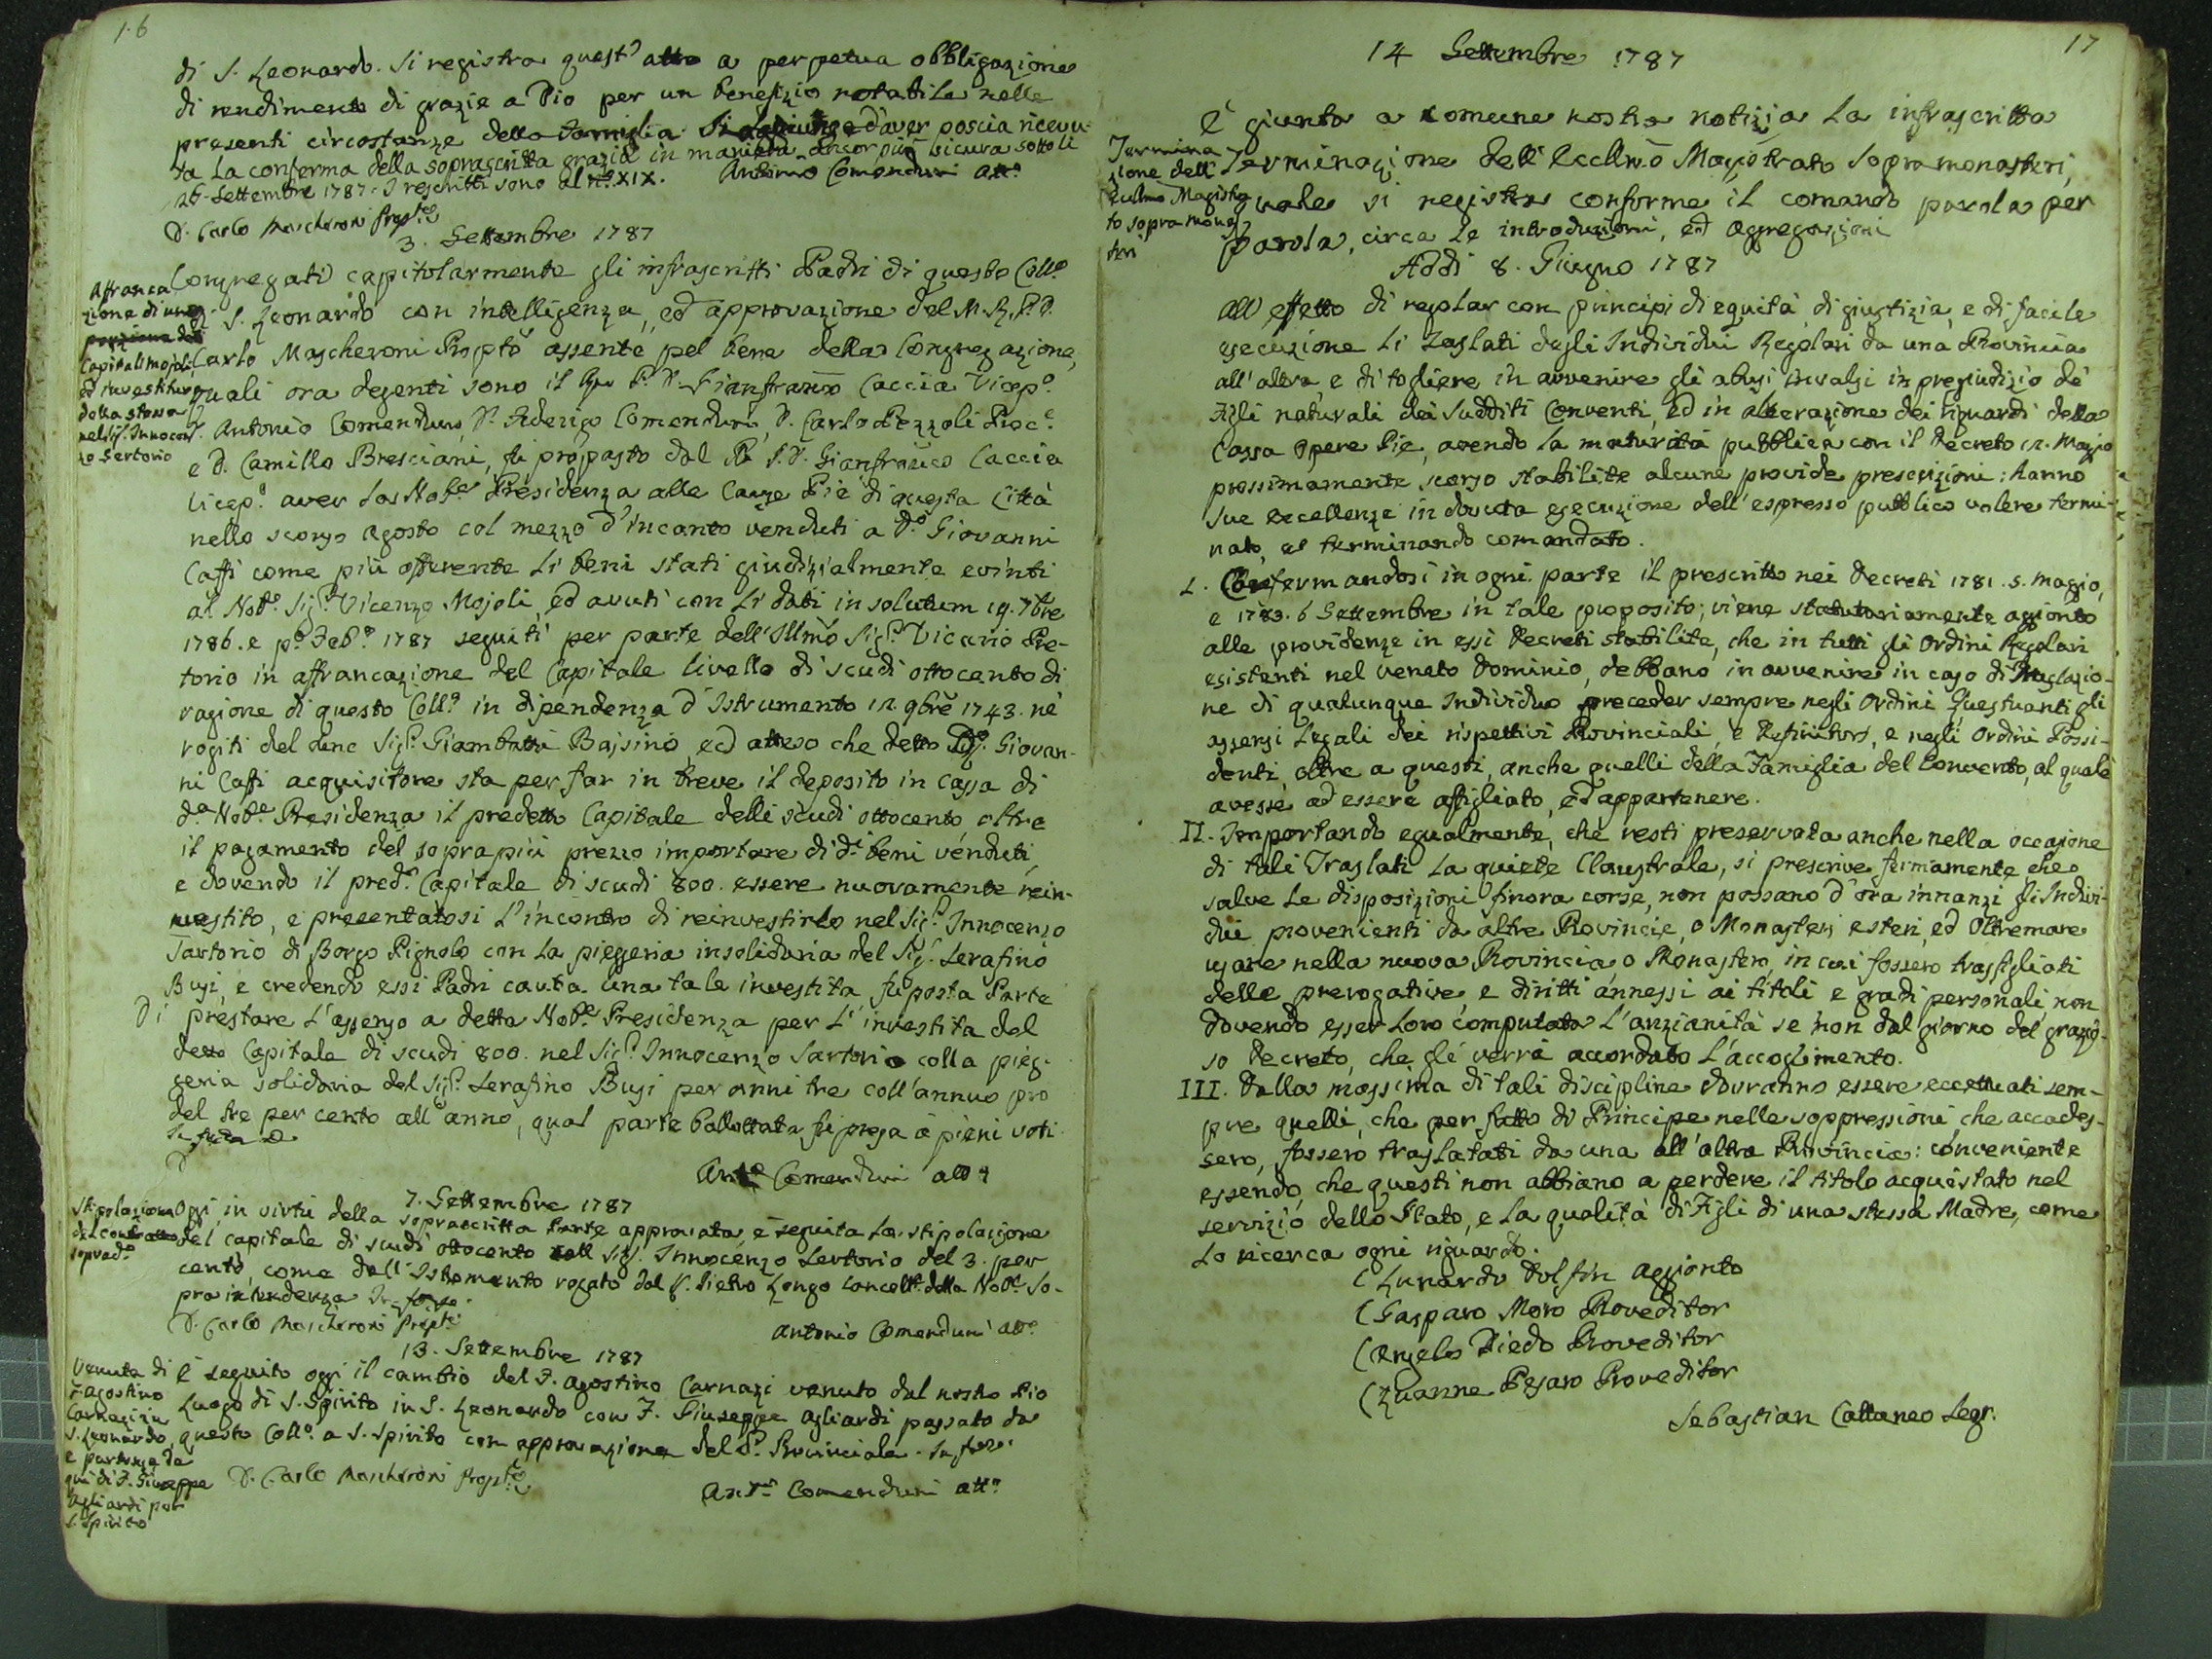 16
di S. Leonardo. Si registra quest' atto a perpetua obbligazione
di rendimento di grazie a Dio per un benefizio notabile nelle
presenti circostanze della Famiglia. Si aggiunge d'aver poscia ricevu-
ta la conferma della soprascritta grazia in maniera ancor più sicura sotto li
26 Settembre 1787. I rescritti sono al n.º XIX. Antonio Comenduni att.º
D. Carlo Mascheroni Prop.to
3. Settembre 1787
Affranca
zione di una
porzione del
Capitali Mojoli,
ed investitura
della stessa
nel Sig. Innocen
zo Sertorio
Congregati capitolarmente gli infrascritti Padri di questo Coll.º
S. Leonardo con intelligenza, ed approvazione del M. R. P. D.
Carlo Mascheroni Propto assente pel bene della Congregazione,
quali ora degenti sono il P. D. Gianfranco Caccia Vicep.º
D. Antonio Comenduni, D. Federigo Comenduni, D. Carlo Pezzoli Proc.e
e D. Camillo Bresciani, fu proposto dal P. D. Gianfranco Caccia
Vicep.º aver la Nob.e Presidenza alle Cause Pie di questa Città
nello scorso Agosto col mezzo d'incanto venduti a D.º Giovanni
Caffi come più offerente li beni stati giudizialmente evinti
al Nob.e Sig.r Vicenzo Mojoli, ed avuti con li dati in solutum 19. 7bre
1786. e p.º Feb.º 1787 seguiti per parte dell'Illmo Sig.r Vicario Pre-
torio in affrancazione del Capitale livello di scudi ottocento di
ragione di questo Coll.º in dipendenza d'Istrumento 12. 9bre 1743. nè
rogiti del Sig.r Giambatta Bajsino, ed atteso che detto D.º Giovan-
ni Caffi acquisitore sta per far in breve il deposito in cassa di
d.a Nob.e Presidenza il predetto Capitale delli scudi ottocento oltre
il pagamento del soprapiù prezzo importare di d.i beni venduti,
e dovendo il pred.º Capitale di scudi 800. essere nuovamente rein-
vestito, e presentatosi l'incontro di reinvestirlo nel Sig.r Innocenzo
Sartorio di Borgo Pignolo con la pieggeria insolidaria del Sig.r Serafino
Bugi, e credendo essi Padri cauta una tale investita fu posta Parte
Di prestare l'assenso a detta Nob.e Presidenza per l'investita del
detto Capitale di scudi 800. nel Sig.r Innocenzo Sartorio colla pieg-
geria solidaria del Sig.r Serafino Bugi per anni tre coll'annuo pro
del tre per cento all'anno, qual parte ballottata fu presa a pieni voti
In fede
D.
Ant.º Comenduni att.º
7. Settembre 1787
Stipolazione
del contratto
soprad.º
Oggi in virtù della soprascritta Parte approvata, è seguita la stipolazione
del capitale di scudi ottocento col Sig.r Innocenzo Sertorio del 3. per
cento, come dall'Istromento rogato dal S. Pietro Longo Cancell.e della Nob.e So-
praintendenza. In fede.
D. Carlo Mascheroni Prop.to
Antonio Comenduni att.º
13. Settembre 1787
Venuta di
F. Agostino
Carnazi in
S. Leonardo,
e partenza da
quì di F. Giuseppe
Agliardi per
S. Spirito
È seguito oggi il cambio del F. Agostino Carnazi venuto dal nostro Pio
Luogo di S. Spirito in S. Leonardo con F. Giuseppe Agliardi passato da
questo Coll.º a S. Spirito con approvazione del P. Provinciale. In fede.
D. Carlo Mascheroni Prop.to
Ant.º Comenduni att.º
17
14 Settembre 1787
Termina
zione dell'
Ecclmo Magistra
to sopra monas
teri
È giunta a comune nostra notizia la infrascritta
Terminazione dell'Ecclmo Magistrato sopra monasteri,
quale si registra conforme il comando parola per
parola, circa le introduzioni, ed aggregazioni
Addì 8. Giugno 1787
All'effetto di regolar con principi di equità, di giustizia, e di facile
esecuzione li Traslati degli Individui Regolari da una Provincia
all'altra, e di togliere in avvenire gli abusi invalsi in pregiudizio de'
Figli naturali dei sudditi Conventi, ed in alterazione dei riguardi della
Cassa Opere Pie, avendo la maturità pubblica con il Decreto 12. Maggio
prossimamente scorso stabilite alcune provide prescrizioni; hanno
Sue Eccellenze in dovuta esecuzione dell'espresso pubblico volere termi-
nato, et terminando comandato.
I. Confermandosi in ogni parte il prescritto nei Decreti 1781. 5. Maggio,
e 1783. 6 Settembre in tale proposito; viene statutariamente aggionto
alle providenze in essi Decreti stabilite, che in tutti gli Ordini Regolari
esistenti nel veneto Dominio, debbano in avvenire in caso di traslazio-
ne di qualunque Individuo preceder sempre negli Ordini Questuanti gli
assensi Legali dei rispettivi Provinciali, e Definitori, e negli Ordini Possi-
denti, oltre a questi, anche quelli della Famiglia del Convento, al quale
avesse ad essere affigliato, ed appartenere.
II. Importando egualmente, che resti preservata anche nella occasione
di tali Traslati la quiete Claustrale, si prescrive fermamente che
salve le disposizioni finora corse, non possano d'ora innanzi gl'Indivi-
dui provenienti da altre Provincie, o Monasteri esteri, ed Oltremare
usare nella nuova Provincia, o Monastero, in cui fossero trasfigliati
delle prerogative e diritti annessi ai titoli e gradi personali, non
dovendo esser loro computata l'anzianità se non dal giorno del grazio-
so Decreto, che gli verrà accordato l'accoglimento.
III. Dalla massima di tali discipline dovranno essere eccettuati sem-
pre quelli, che per fatto di Principe nelle soppressioni, che accades-
sero, fossero traslatati da una all'altra Provincia: conveniente
essendo, che questi non abbiano a perdere il titolo acquistato nel
servizio dello Stato, e la qualità di Figli di una stessa Madre, come
lo ricerca ogni riguardo.
( Lunardo Dolfin Aggionto
( Gasparo Moro Proveditor
( Angelo Diedo Proveditor
( Zuanne Pesaro Proveditor
Sebastian Cattaneo Segr.